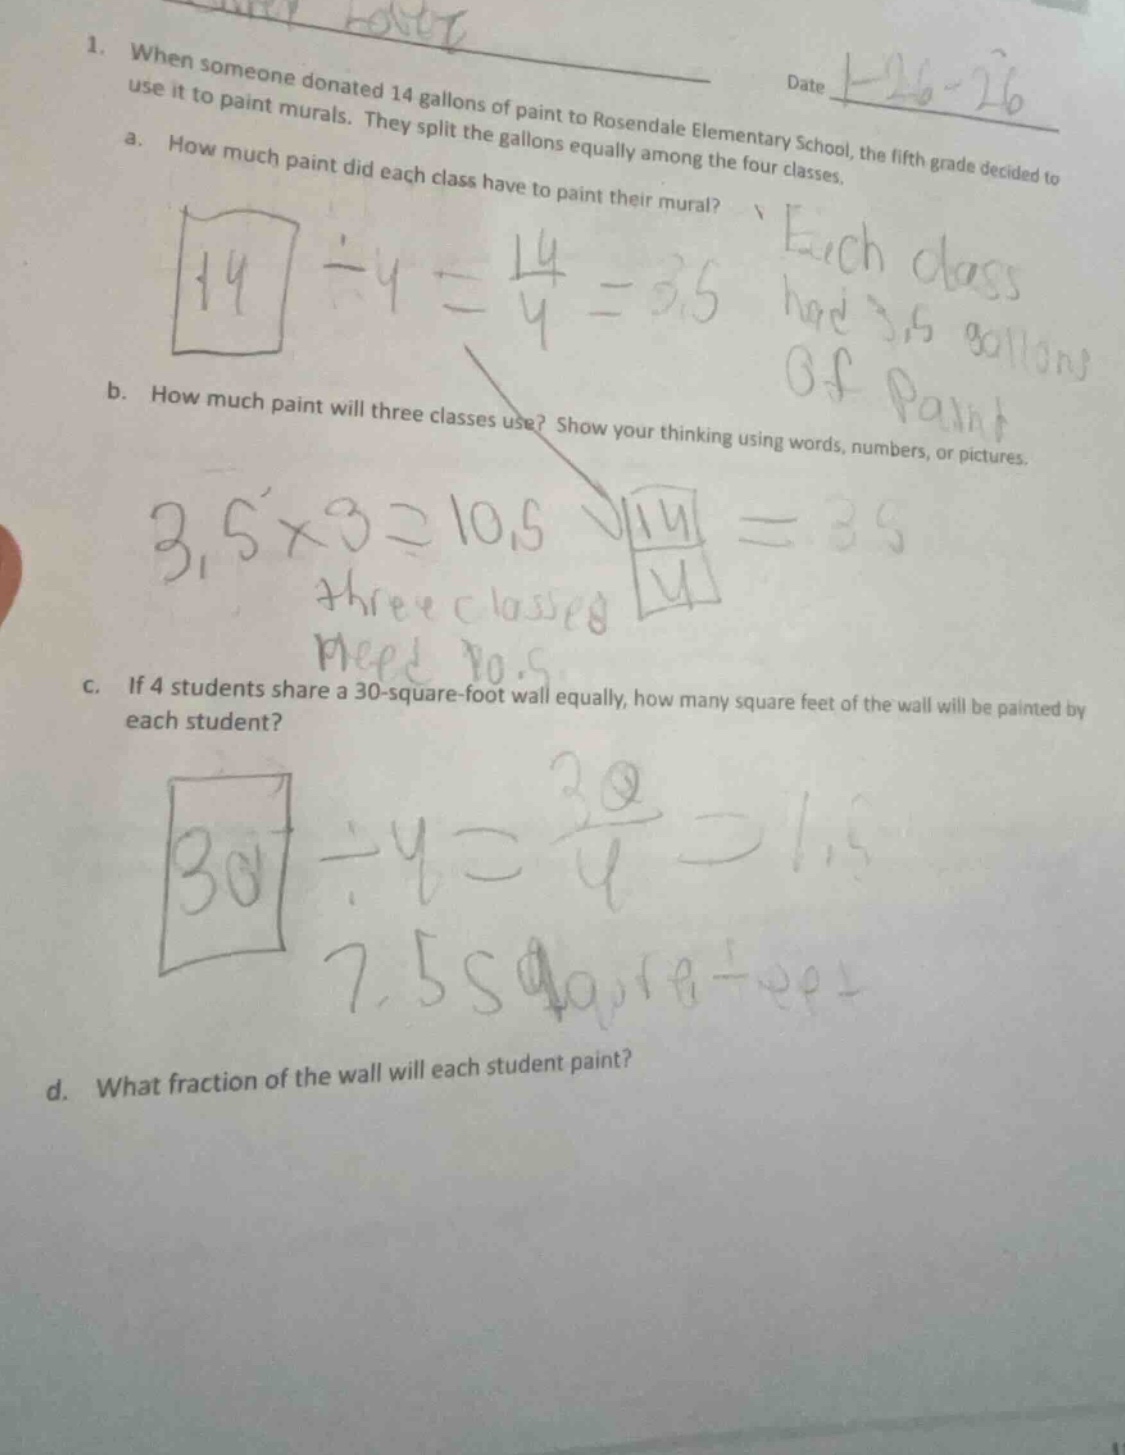 Date 1-26-26
1. When someone donated 14 gallons of paint to Rosendale Elementary School, the fifth grade decided to
use it to paint murals. They split the gallons equally among the four classes.
a. How much paint did each class have to paint their mural?
14 ÷ 4 = 14/4 = 3.5
Each class
had 3,5 gallons
Of Paint
b. How much paint will three classes use? Show your thinking using words, numbers, or pictures.
3,5 × 3 = 10,5 14/4 = 35
three classes
Need 10.5
c. If 4 students share a 30-square-foot wall equally, how many square feet of the wall will be painted by
each student?
30 ÷ 4 = 30/4 = 
7.5 square feet
d. What fraction of the wall will each student paint?